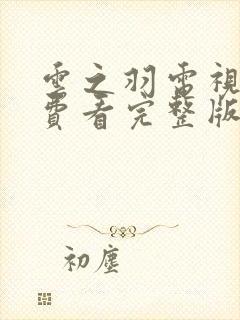 雲之羽電視
費看完整版
初塵